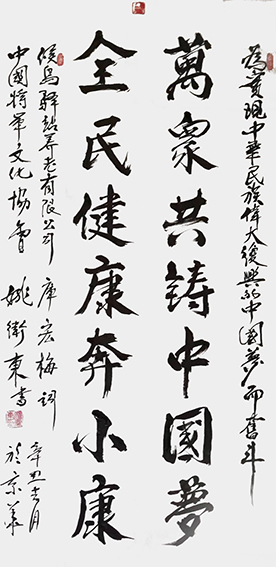 為實現中華民族偉大復興的中國夢而奮斗
萬衆共铸中國夢
全民健康奔小康
候鸟驿站养老有限公司
庫宏梅词
中國将军文化協會
姚衛東書
辛丑
於京華